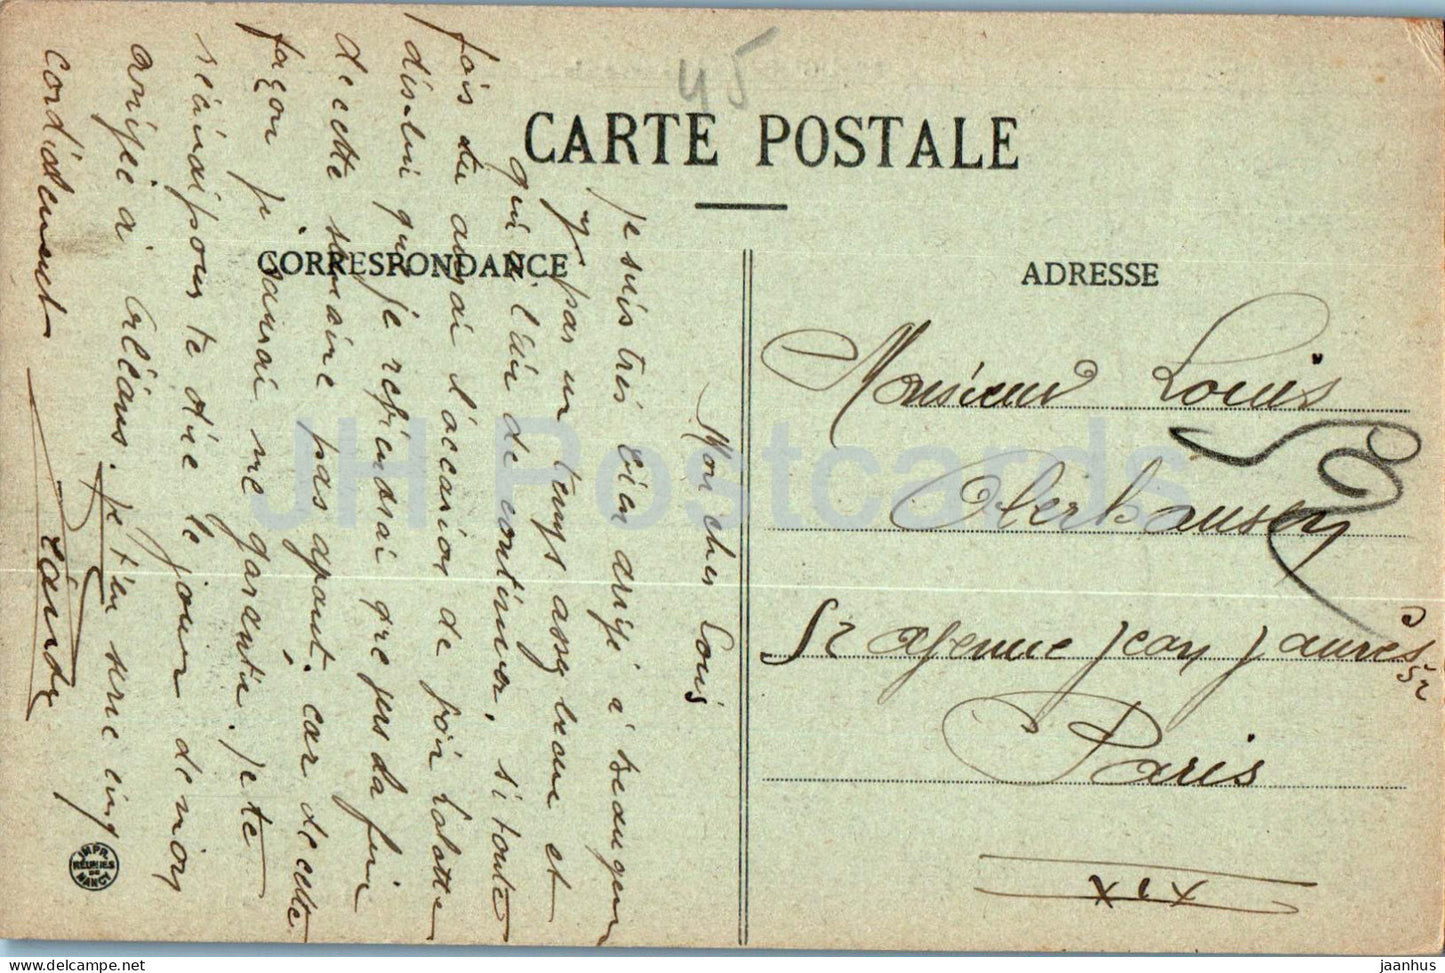 45
CARTE POSTALE
CORRESPONDANCE
Mon cher Louis
Je suis très bien arrivé à Beaugency
par un temps assez beau et
qui a l'air de continuer, si toute
fois tu avais l'occasion de voir
dis-lui que je reviendrai que vers la fin
de cette semaine pas avant. car de cette
façon je saurai me garantir. Je te
réécrirai pour te dire le jour de mon
arrivée à Orléans. Je t'en serre cinq
cordialement
ADRESSE
Monsieur Louis
Oberhausen
52 avenue Jean Jaurès 52
Paris
XIX
IMPR. RÉUNIES DE NANCY
JH Postcards
www.delcampe.net
jaanhus